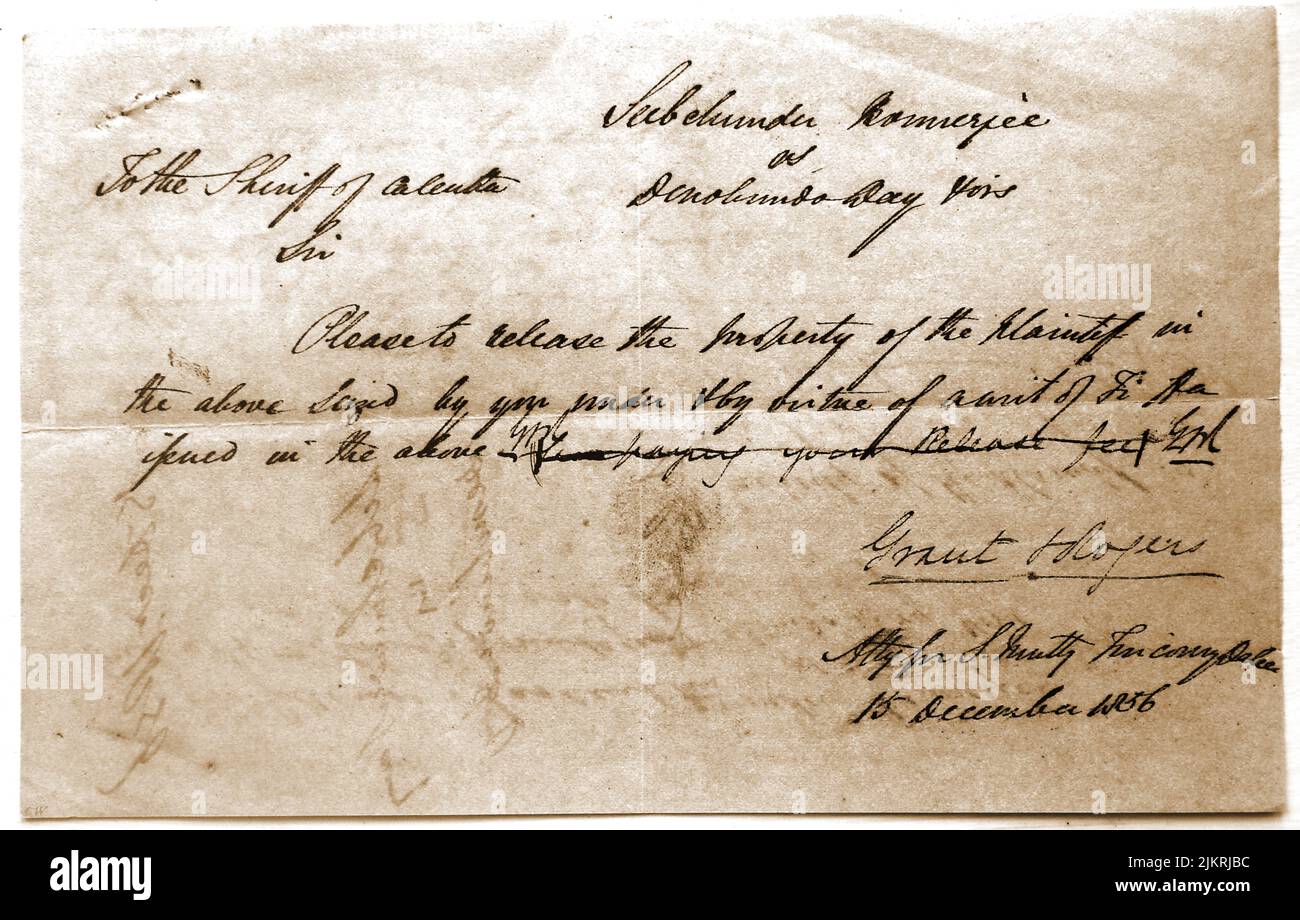 Sibchunder Bonnerjee
vs
To the Sheriff of Calcutta
Denobundo Day & ors
Sir
Please to release the property of the Plaintiff in
the above seized by you under & by virtue of a writ of Fi Fa
issued in the above paying your Release fee G&R
Grant & Rogers
Atty for S. Mutty Tincowry
15 December 1856
alamy
Image ID: 2JKRJBC
www.alamy.com